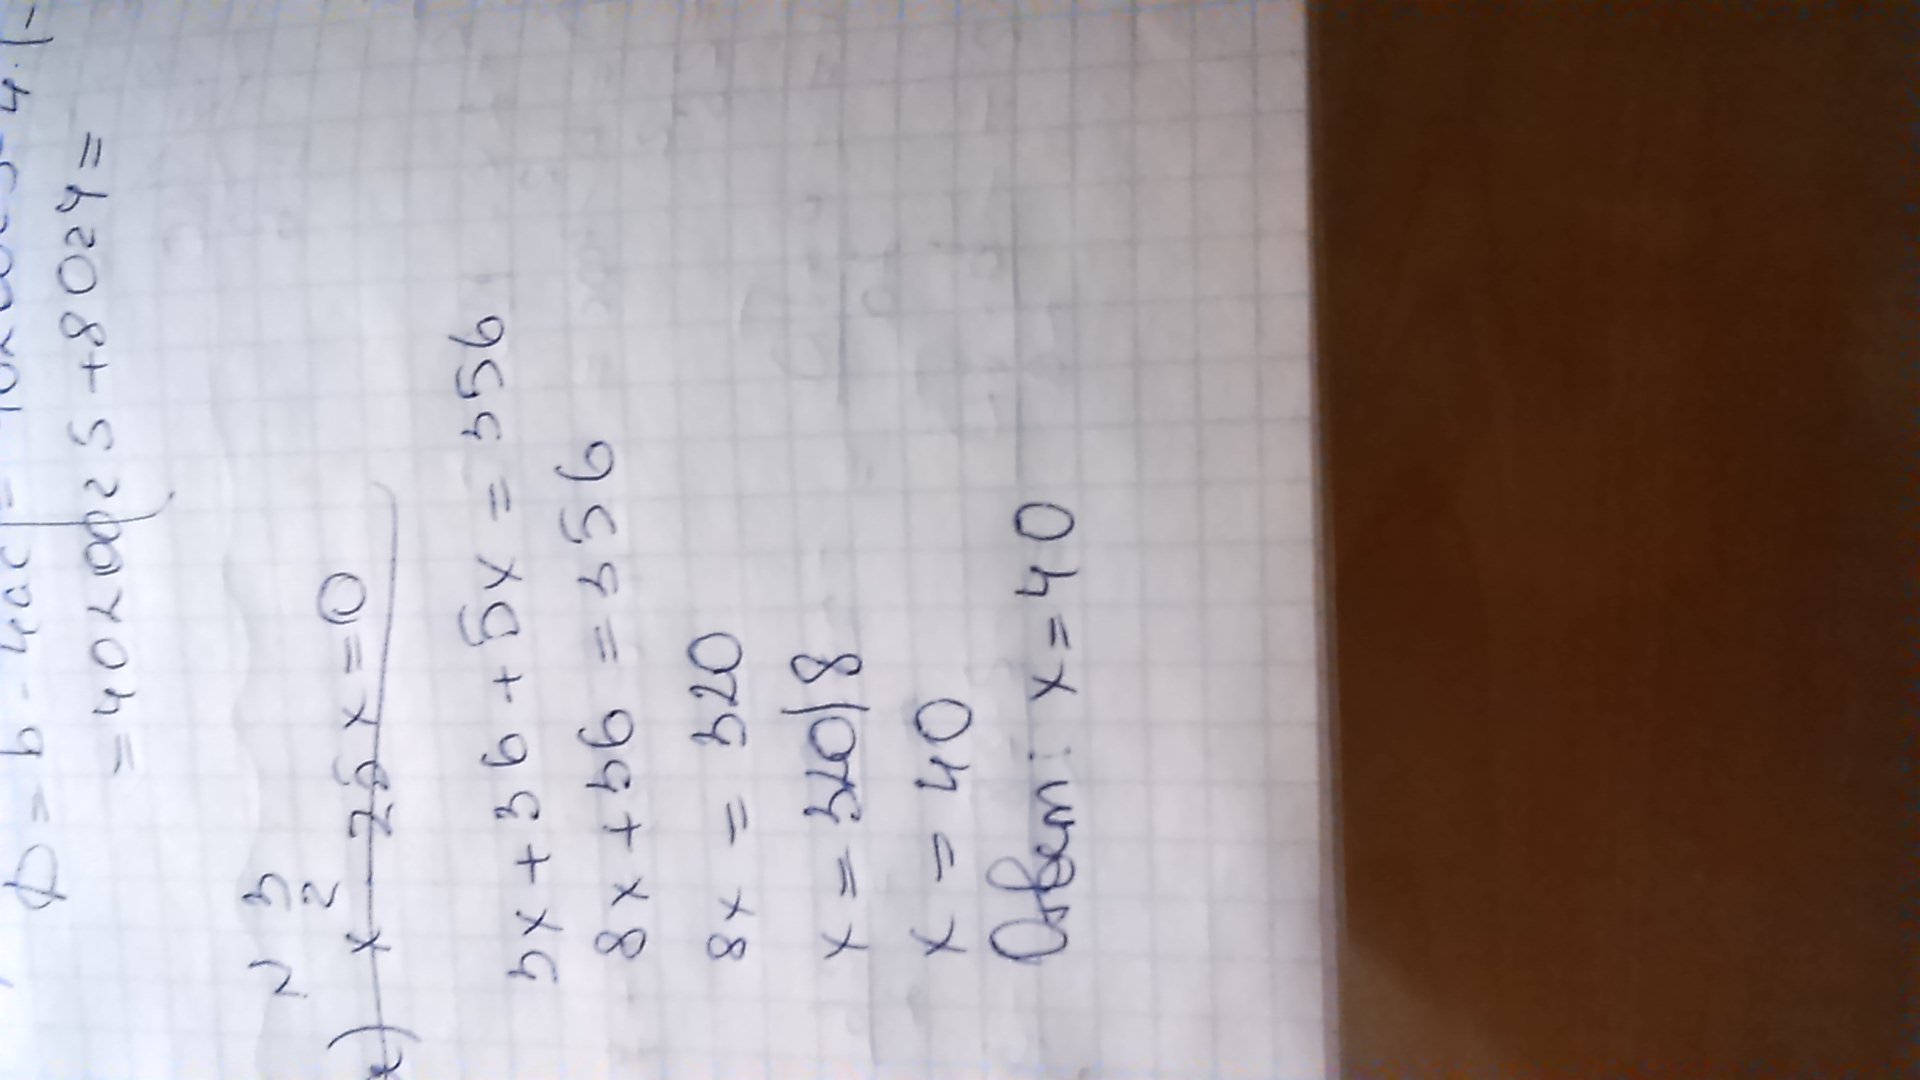 D = b - 4ac = 4·(-
= 4020025 + 8024 =
N 3
x² - 25x = 0
3x + 36 + 5x = 356
8x + 36 = 356
8x = 320
x = 320/8
x = 40
Ответ: x = 40